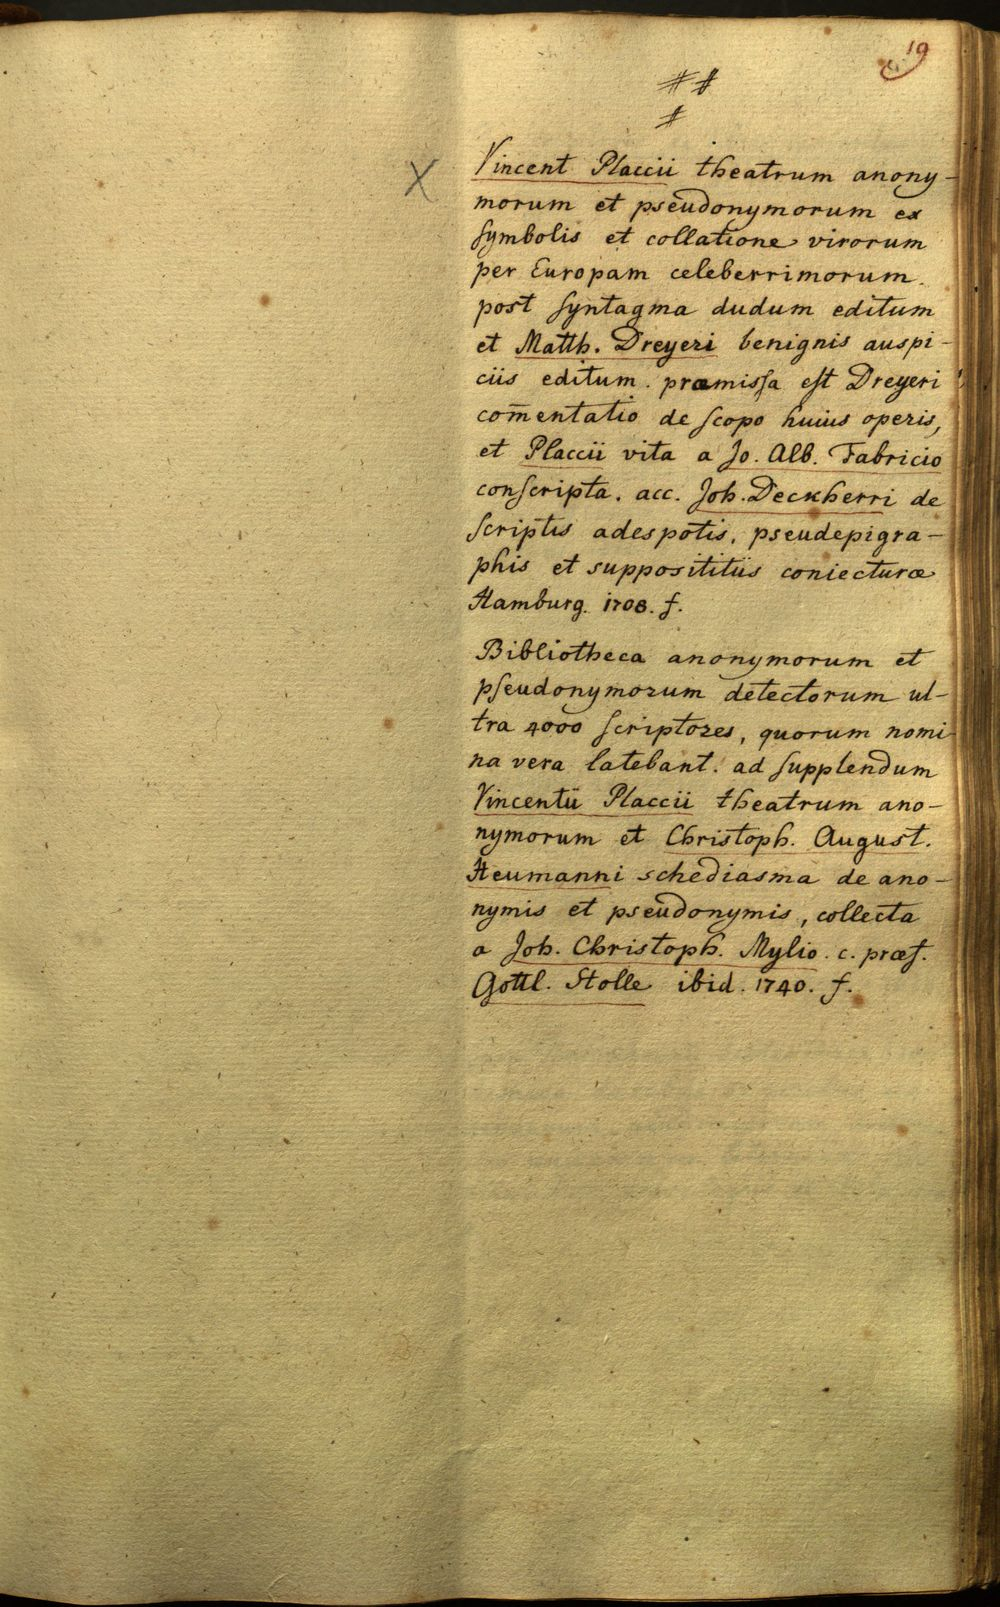 19
# #
#
X Vincent Placcii theatrum anony-
morum et pseudonymorum ex
symbolis et collatione virorum
per Europam celeberrimorum.
post syntagma dudum editum
et Matth. Dreyeri benignis auspi-
ciis editum. præmissa est Dreyeri
com̄entatio de scopo huius operis,
et Placcii vita a Jo. Alb. Fabricio
conscripta. acc. Joh. Deckherri de
scriptis adespotis, pseudepigra-
phis et supposititiis coniecturæ
Hamburg. 1708. f.
Bibliotheca anonymorum et
pseudonymorum detectorum ul-
tra 4000 scriptores, quorum nomi-
na vera latebant. ad supplendum
Vincentii Placcii theatrum ano-
nymorum et Christoph. August.
Heumanni schediasma de ano-
nymis et pseudonymis, collecta
a Joh. Christoph. Mylio. c. præf.
Gottl. Stolle ibid. 1740. f.